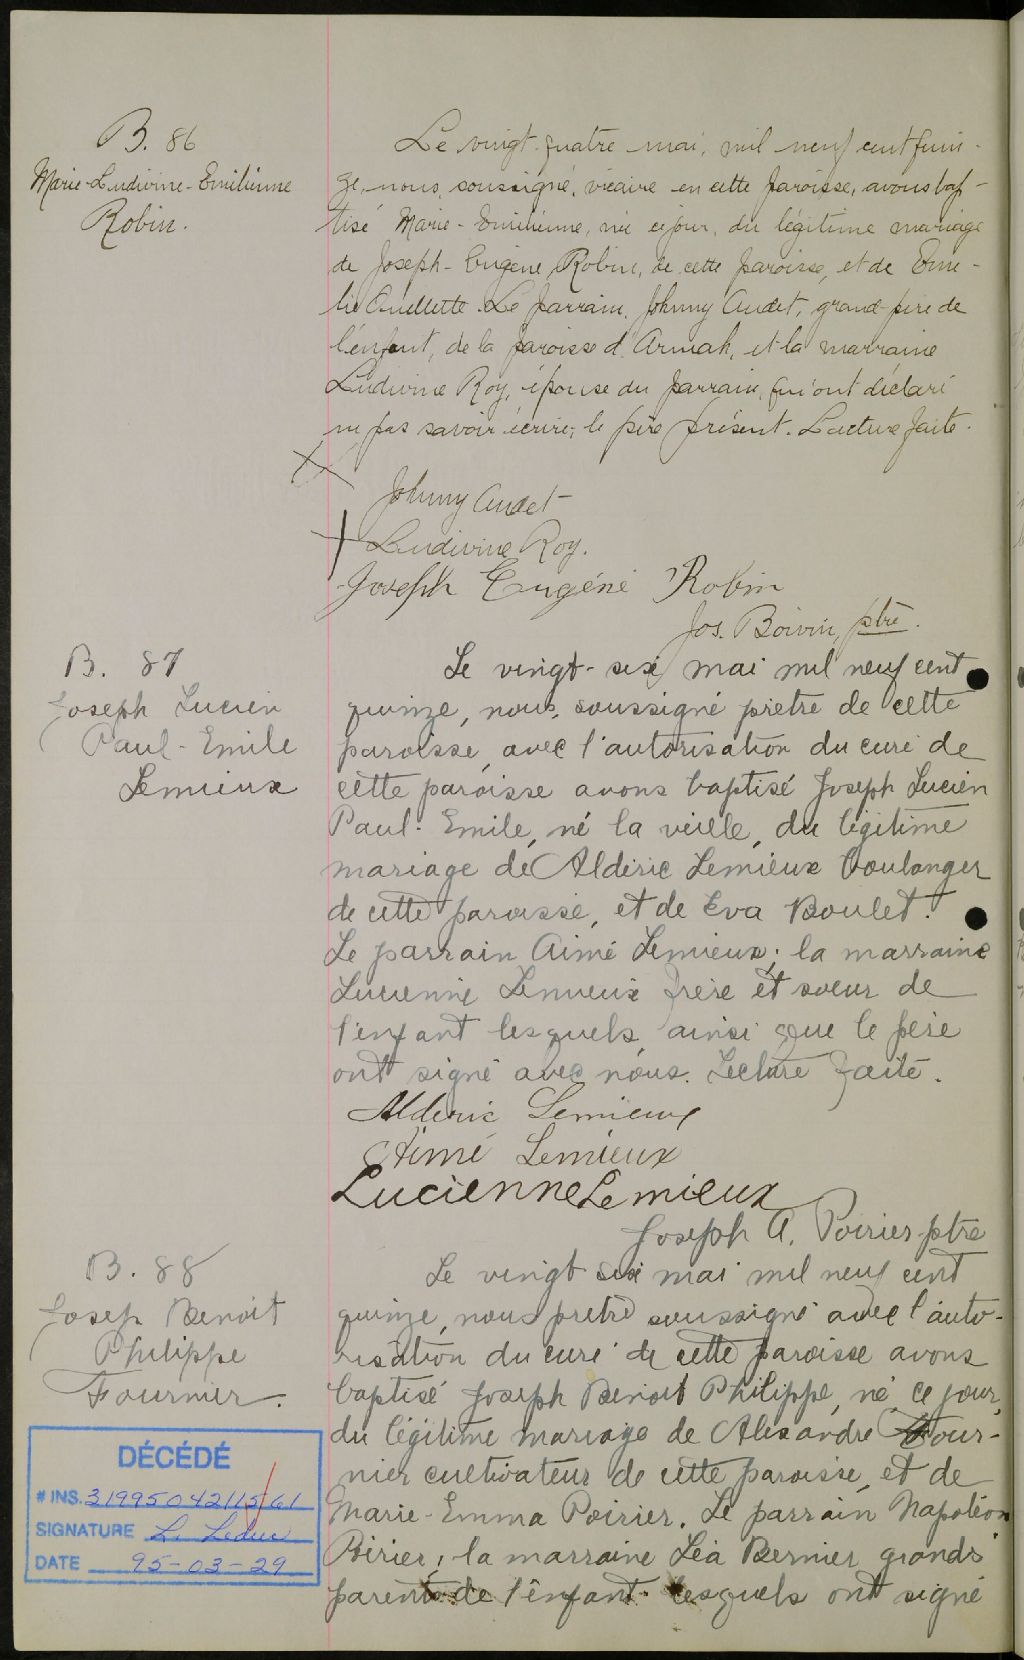 B. 86
Marie-Ludivine-Emilienne
Robin.
Le vingt-quatre mai, mil neuf cent quin-
ze, nous, soussigné, vicaire en cette paroisse, avons bap-
tisé Marie-Emilienne, née ce jour, du légitime mariage
de Joseph-Eugène Robin, de cette paroisse, et de Emi-
lie Ouellette. Le parrain, Johnny Audet, grand-père de
l'enfant, de la paroisse d'Armah, et la marraine
Ludivine Roy, épouse du parrain, qui ont déclaré
ne pas savoir écrire; le père présent. Lecture faite.
Johnny Audet
Ludivine Roy.
Joseph Eugéné Robin
Jos. Boivin, ptre.
B. 87
Joseph Lucien
Paul-Emile
Lemieux
Le vingt-six mai mil neuf cent
quinze, nous, soussigné prêtre de cette
paroisse, avec l'autorisation du curé de
cette paroisse avons baptisé Joseph Lucien
Paul-Emile, né la veille, du légitime
mariage de Aldéric Lemieux boulanger
de cette paroisse, et de Eva Boulet.
Le parrain Aimé Lemieux; la marraine
Lucienne Lemieux frère et soeur de
l'enfant lesquels, ainsi que le père
ont signé avec nous. Lecture faite.
Alderic Lemieux
Aimé Lemieux
Lucienne Lemieux
Joseph A. Poirier ptre
B. 88
Joseph Benoit
Philippe
Fournier.
Le vingt six mai mil neuf cent
quinze, nous prêtre soussigné avec l'auto-
risation du curé de cette paroisse avons
baptisé Joseph Benoit Philippe, né ce jour,
du légitime mariage de Alexandre Four-
nier cultivateur de cette paroisse, et de
Marie-Emma Poirier. Le parrain Napoléon
Poirier; la marraine Léa Bernier grands
parents de l'enfant lesquels ont signé
DÉCÉDÉ
# INS. 31995042115/61
SIGNATURE L. Leduc
DATE 95-03-29